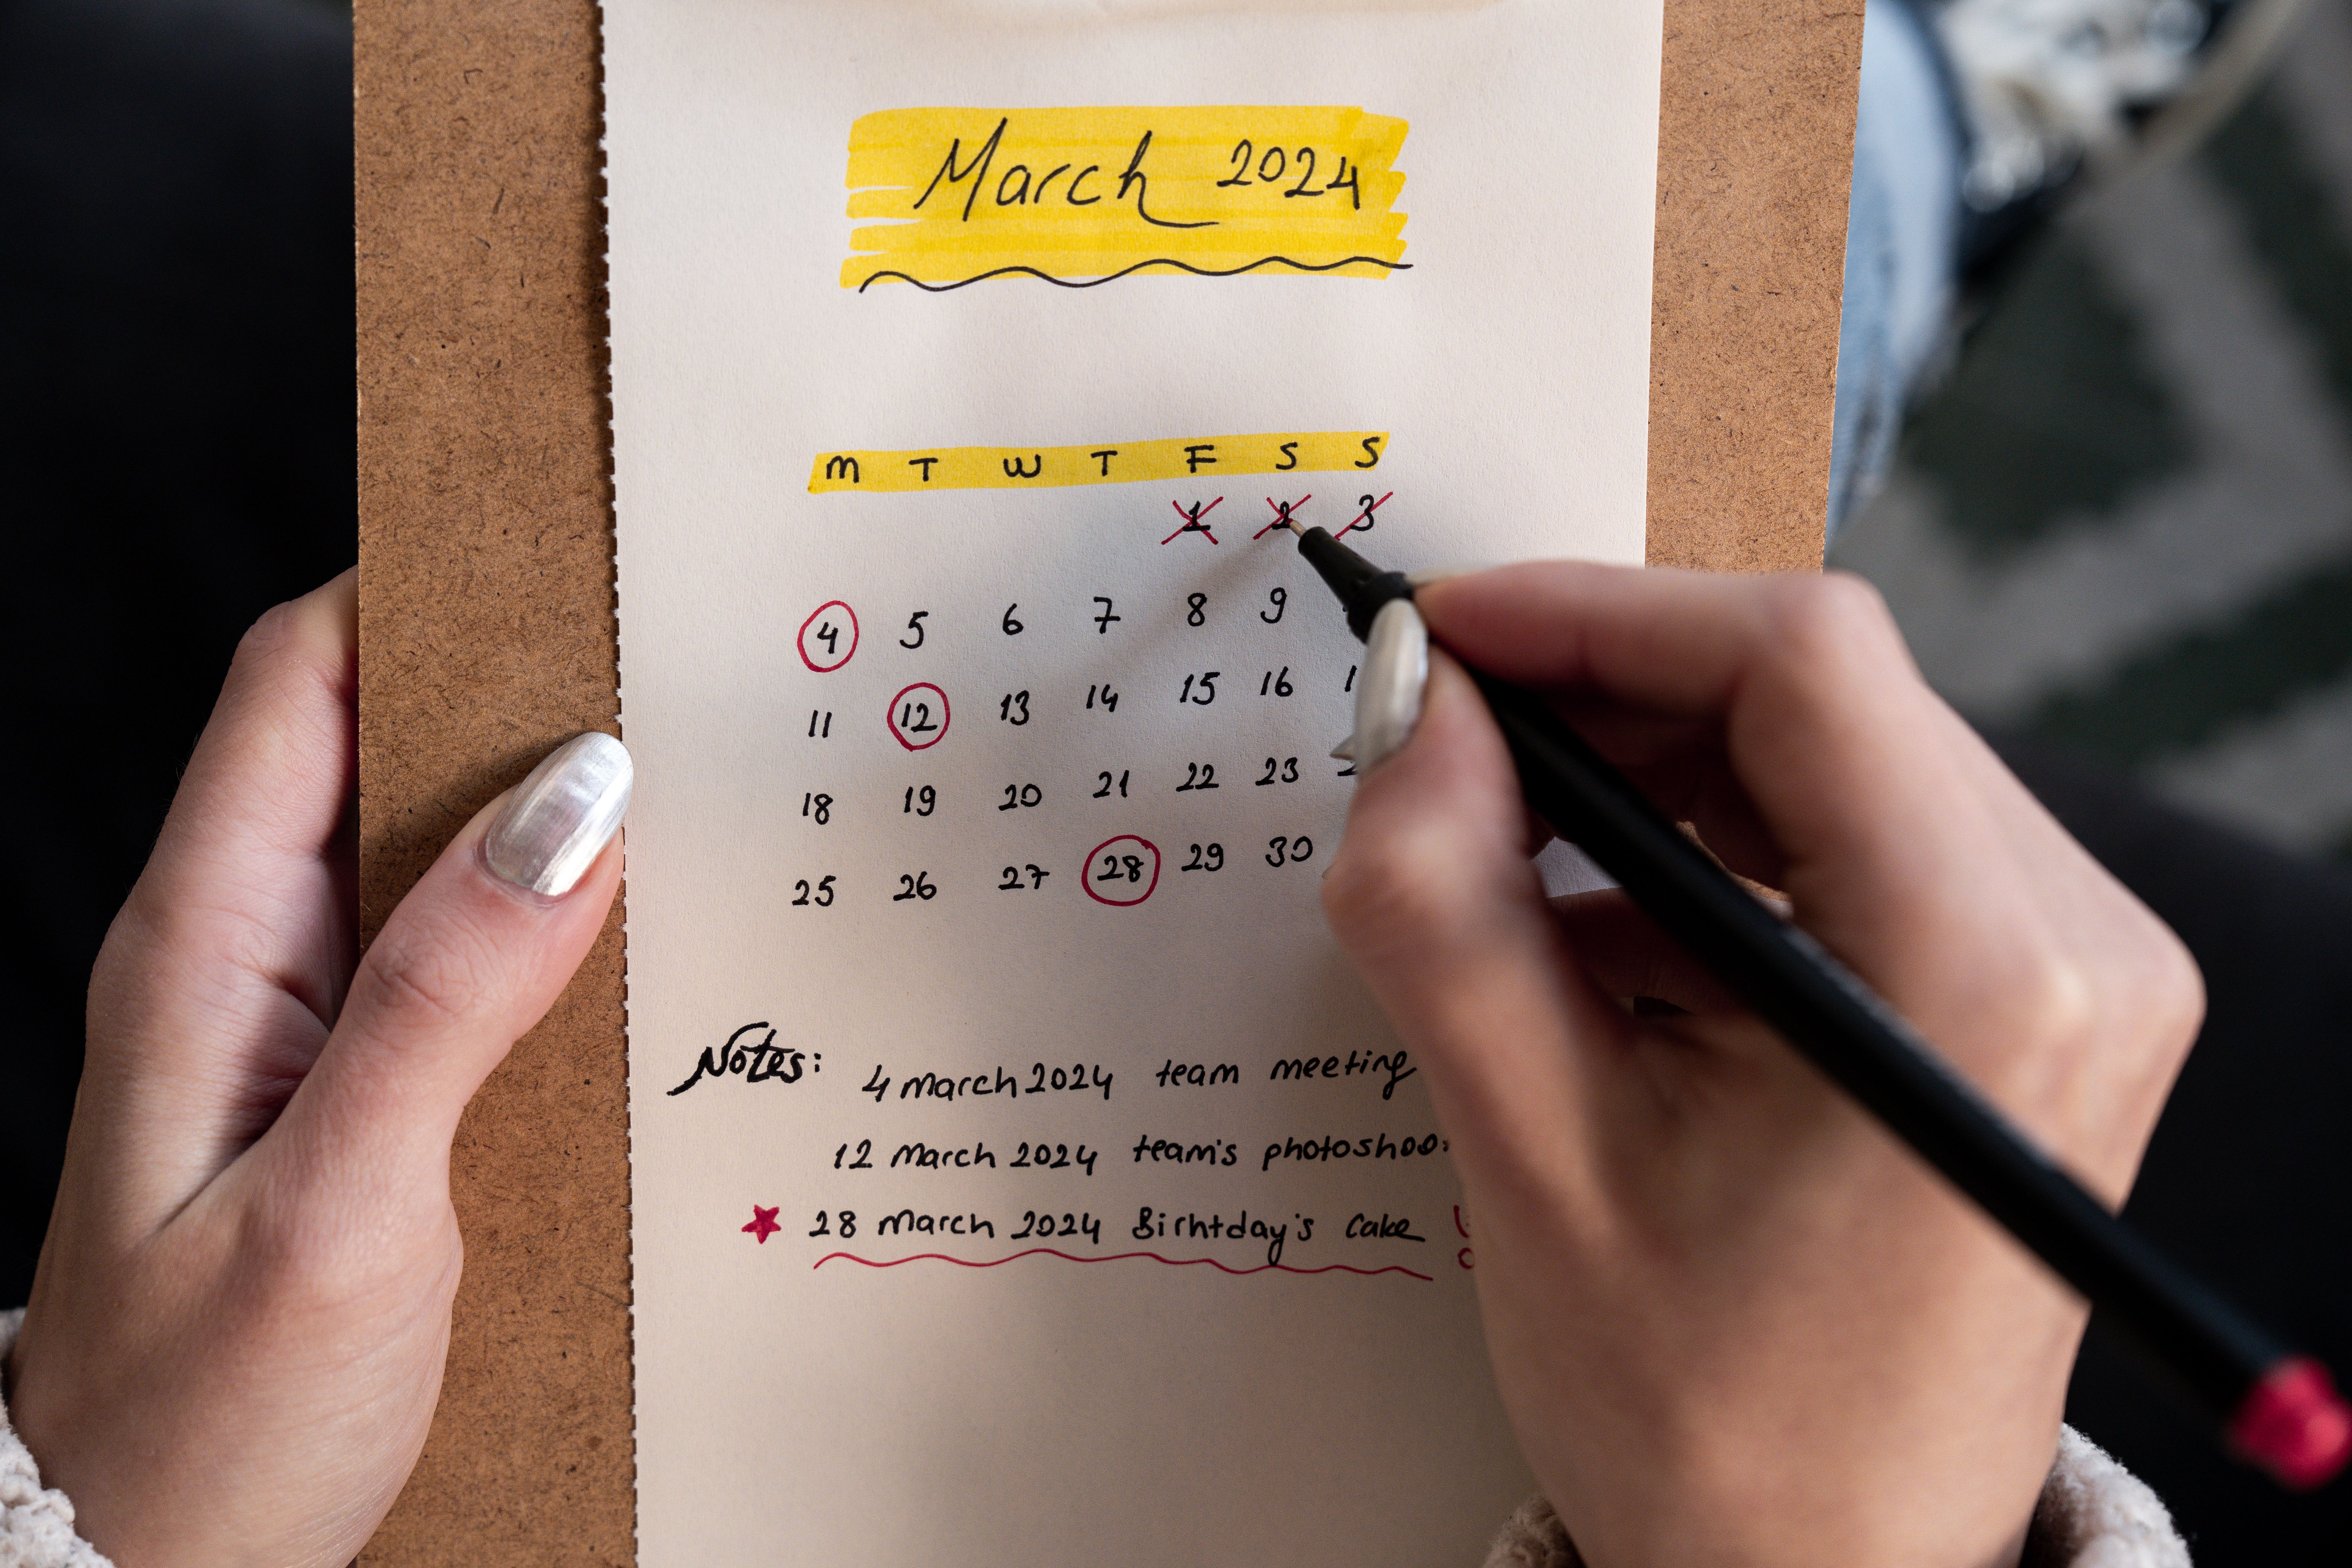 March 2024
M T W T F S S
1 2 3
4 5 6 7 8 9
11 12 13 14 15 16
18 19 20 21 22 23
25 26 27 28 29 30
Notes: 4 march 2024 team meeting
12 march 2024 team's
28 march 2024 Birhtday's cake !